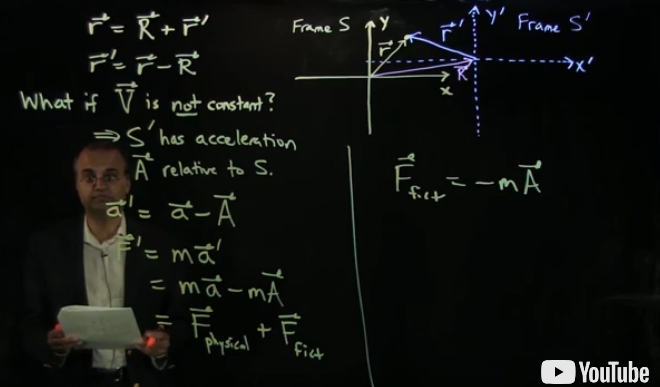 r⃗ = R⃗ + r⃗'
r⃗' = r⃗ - R⃗
What if V⃗ is not constant?
⇒ S' has acceleration
A⃗ relative to S.
a⃗' = a⃗ - A⃗
F⃗' = ma⃗'
= ma⃗ - mA⃗
= F⃗physical + F⃗fict
Frame S
Y
r⃗
r⃗'
R⃗
x
Y'
Frame S'
x'
F⃗fict = -mA⃗
YouTube